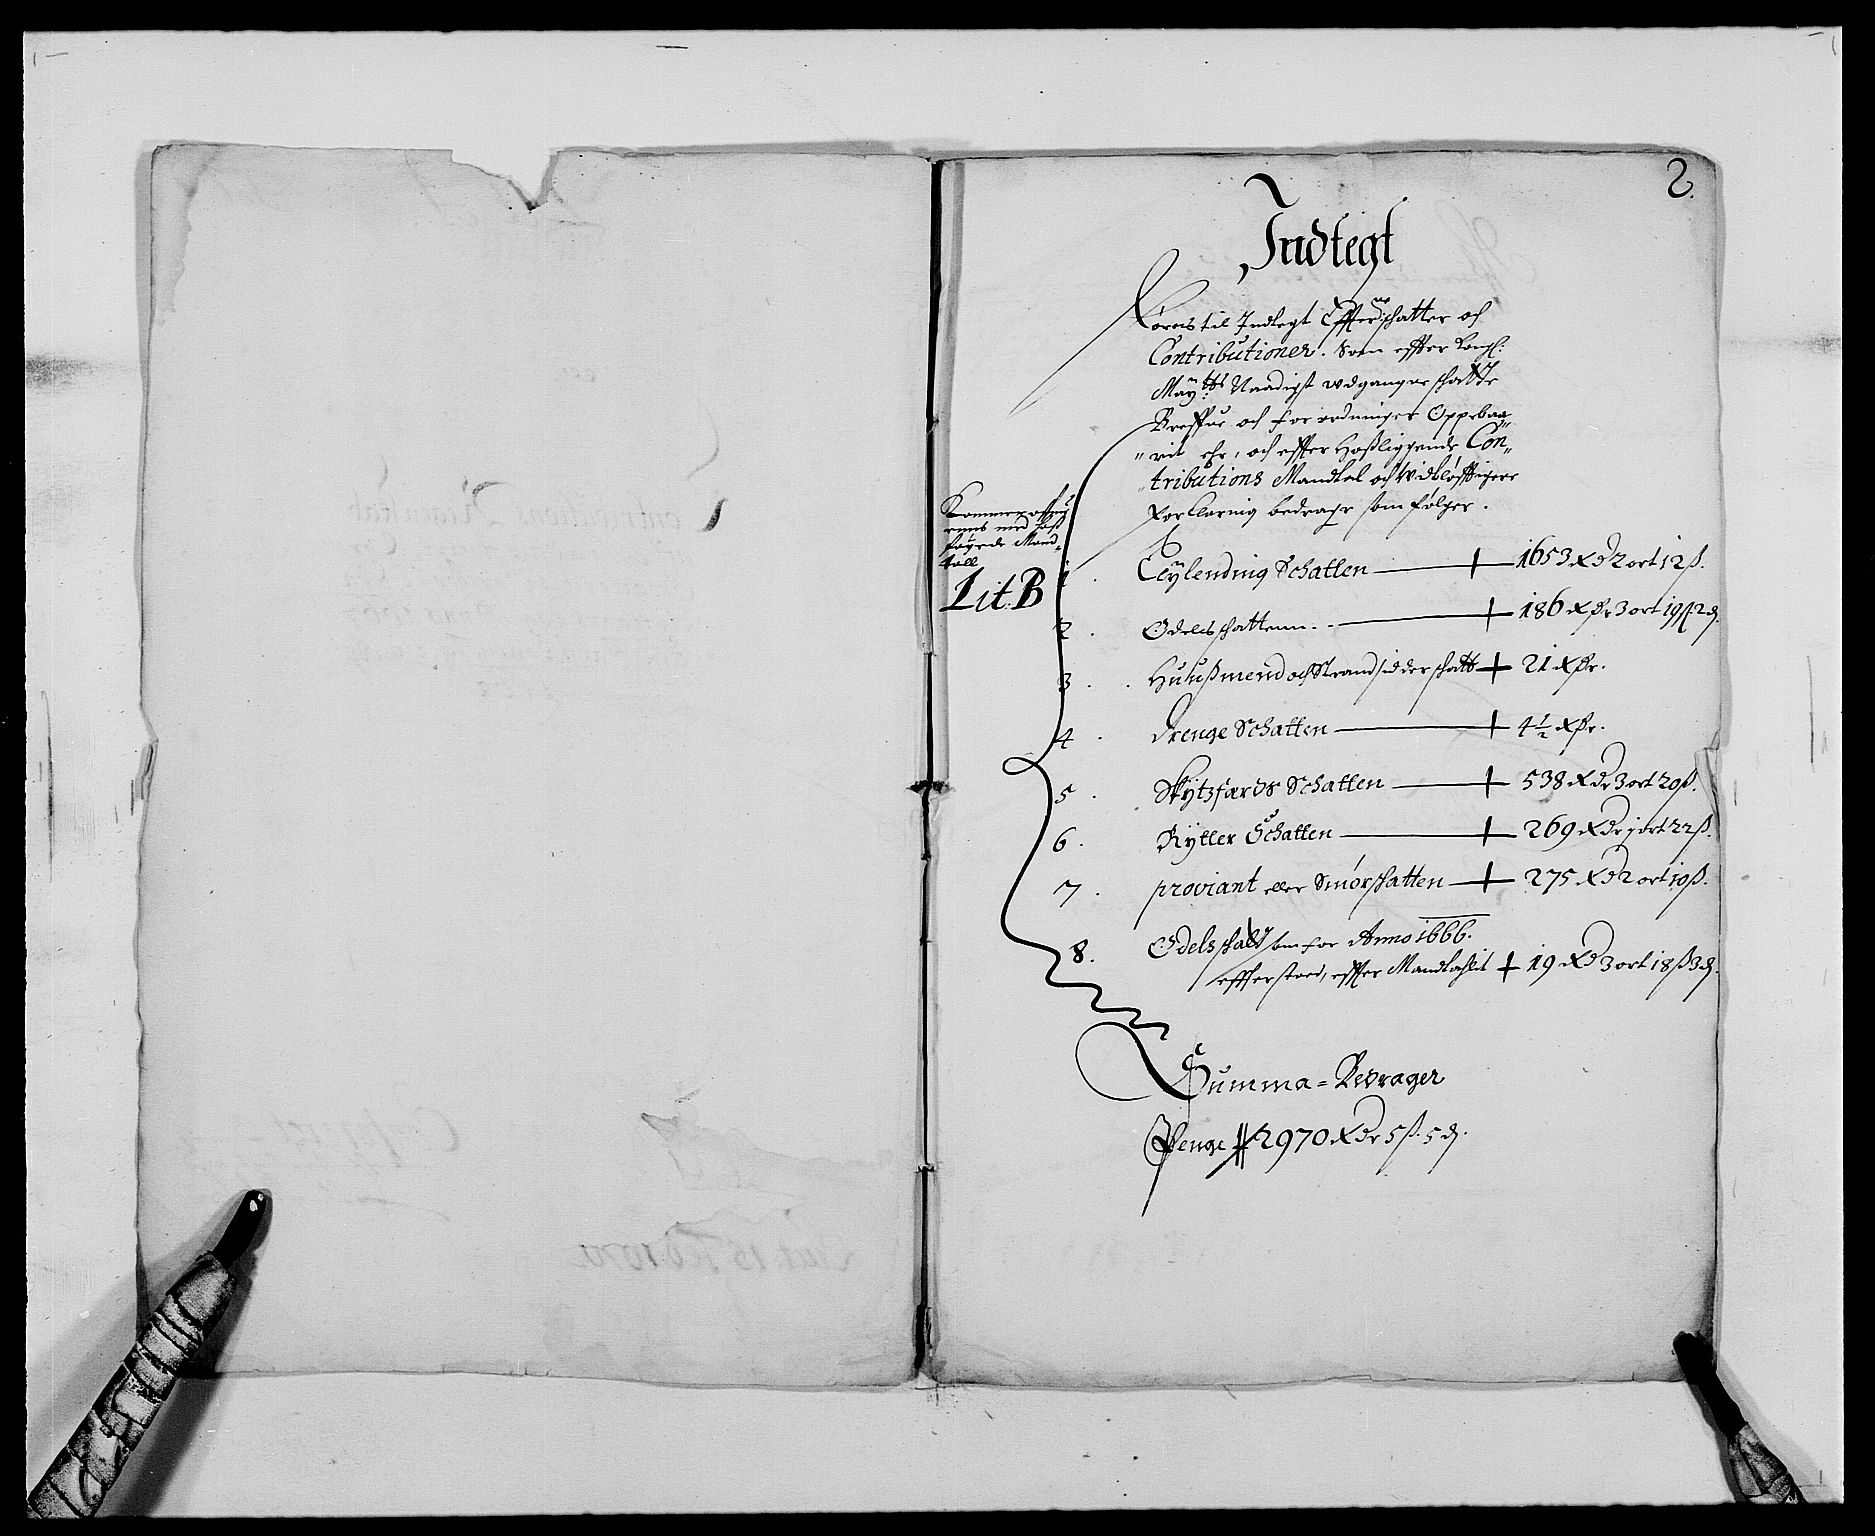 2.
Indtegt
Føres til Indtegt Effterne schatter och
Contributioner. Som effter Kongl:
Maÿtts Naadigst udgangne schatte
Breffue och forordninger Oppebaa„
„rit ehr, och effter hosliggende Con„
„tributions Mandtal och vidtløfftigere
forklaring bedrager som følger.
føyede Mand„
tall
Lit: B
1. Leÿlending Schatten — 1653 Rdr 2 ort 12 ß.
2. Odelsschattenn — 186 Rdr 3 ort 19 ß. 2 d.
3. Huußmend och Strandsidder schatt 21 Rdr.
4. Drenge Schatten — 4 1/2 Rdr.
5. Skÿtzfærds Schatten — 538 Rdr 3 ort 20 ß.
6. Rÿtter Schatten — 269 Rdr 1 ort 22 ß.
7. proviant eller Smørschatten — 275 Rd 2 ort 10 ß.
8. Odelsschatt som for Anno 1666.
effterstoed, effter Mandtahlit 19 Rd 3 ort 18 ß 3 d.
Summa = Bedrager
Penge 2970 Rdr 5 ß. 5 d.